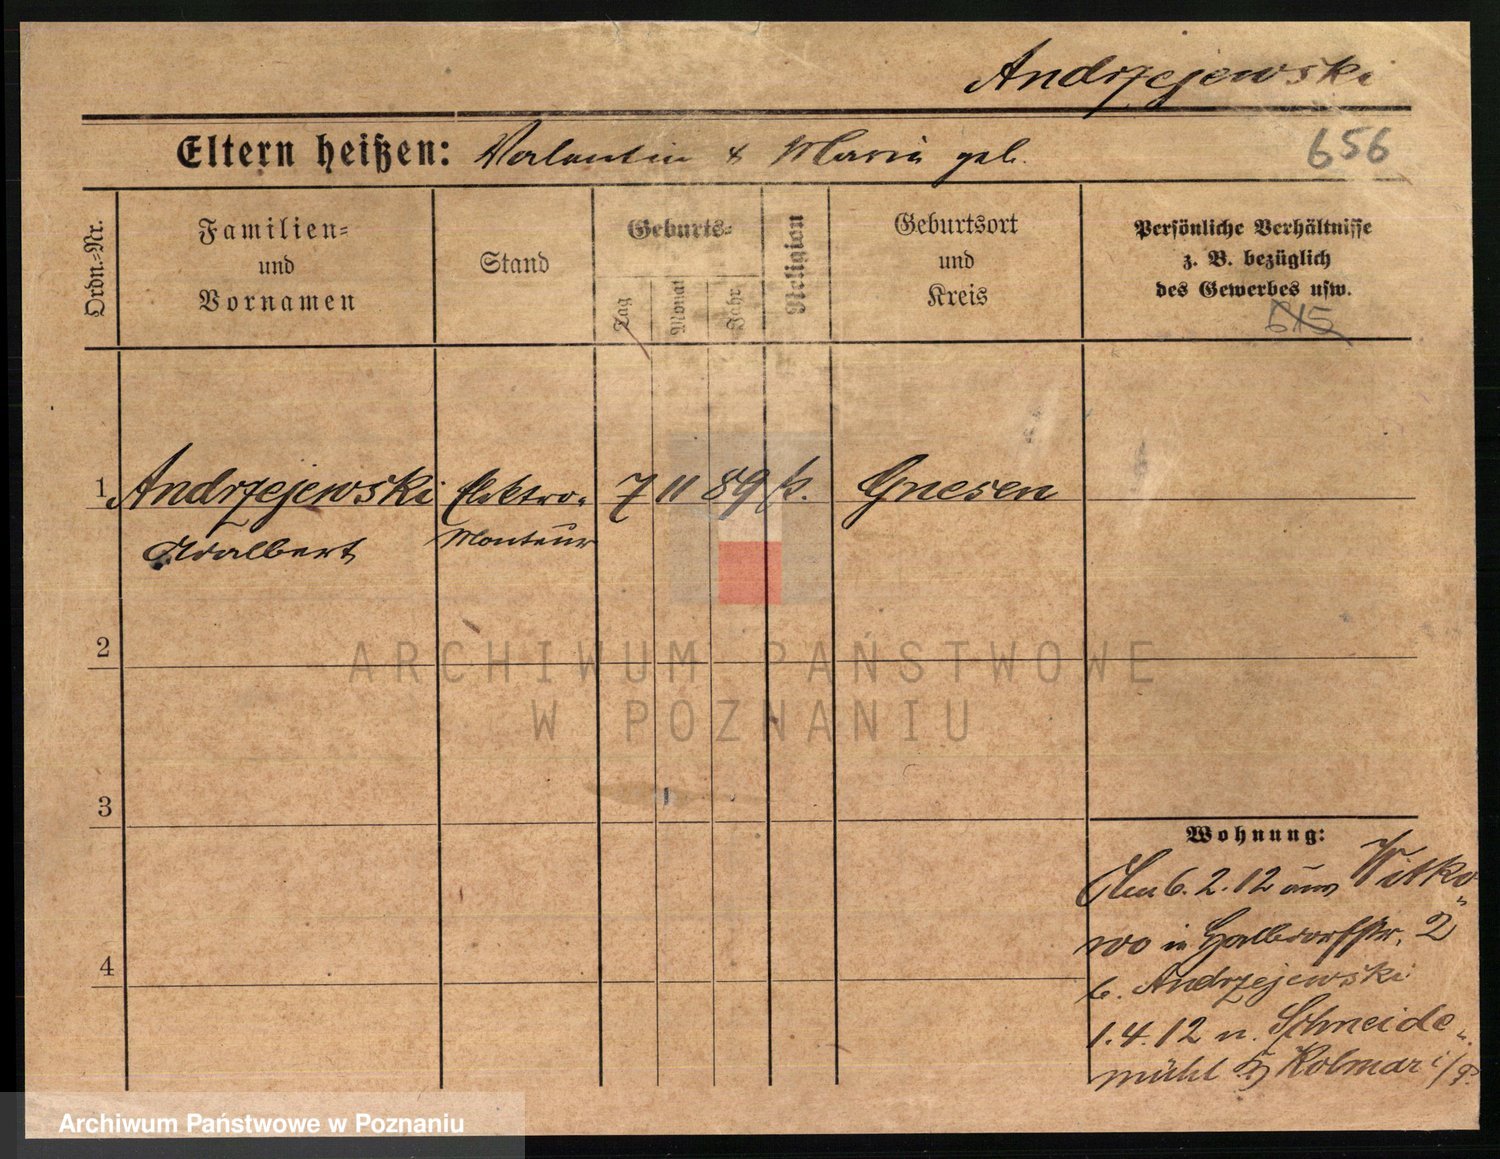 Andrzejewski
Eltern heißen: Valentin & Maria geb.
656
Ordn.-Nr.
Familien-
und
Vornamen
Stand
Geburts-
Tag
Monat
Jahr
Religion
Geburtsort
und
Kreis
Persönliche Verhältnisse
z. B. bezüglich
des Gewerbes usw.
615
1 Andrzejewski Elektro- 7 11 89 k. Gnesen
Adalbert Monteur
2
3
4
Wohnung:
Am 6.2.12 aus Witko-
wo in Halbdorfstr. 2
b. Andrzejewski
1.4.12 n. Schneide-
mühl Kolmar i/P.
ARCHIWUM PAŃSTWOWE
W POZNANIU
Archiwum Państwowe w Poznaniu